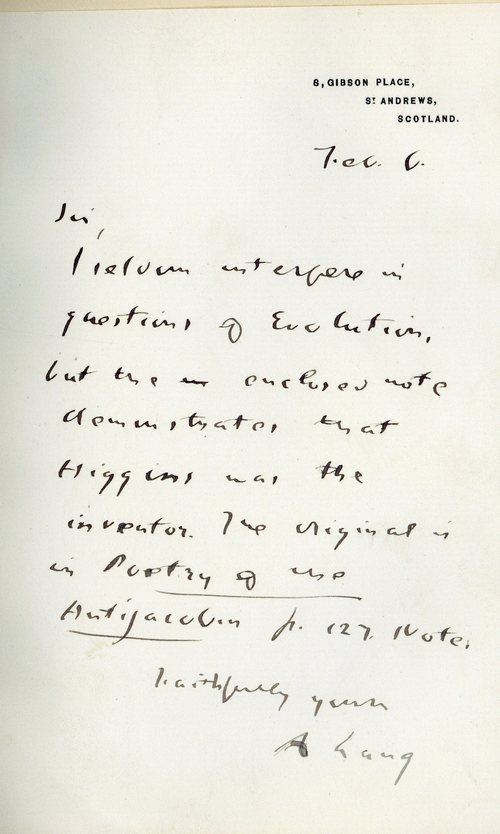 8, GIBSON PLACE,
ST ANDREWS,
SCOTLAND.
Feb. 6.
Sir,
I seldom interfere in
questions of Evolution,
but the enclosed note
demonstrates that
Higgins was the
inventor. The original is
in Poetry of the
Antijacobin p. 127. Note.
Faithfully yours
A Lang